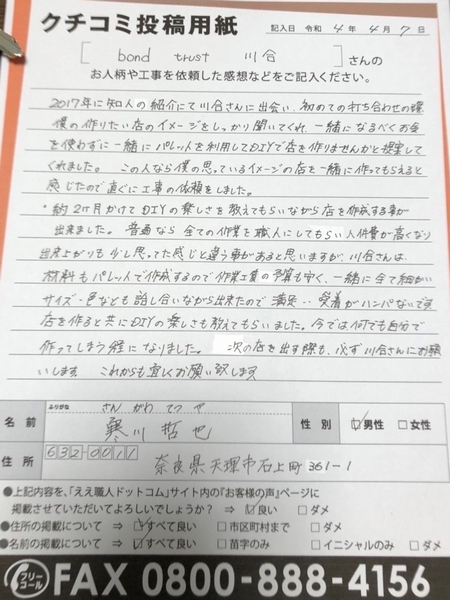 クチコミ投稿用紙
記入日 令和 4 年 4 月 7 日
[ bond trust 川合 ] さんの
お人柄や工事を依頼した感想などをご記入ください。
2017年に知人の紹介にて川合さんに出会い、初めての打ち合わせの際
僕の作りたい店のイメージをしっかり聞いてくれ、一緒になるべくお金
を使わずに一緒にパレットを利用してDIYで店を作りませんかと提案して
くれました。この人なら僕の思っているイメージの店を一緒に作ってもらえると
感じたので直ぐに工事の依頼をしました。
約2ヶ月かけてDIYの楽しさを教えてもらいながら店を作成する事が
出来ました。普通なら全ての作業を職人にしてもらい人件費が高くなり
出来上がりも少し思ってた感じと違う事があると思いますが、川合さんは、
材料もパレットで作成するので作業工賃の予算も安く、一緒に全て細かい
サイズ・色なども話し合いながら出来たので満足…愛着がハンパないです
店を作ると共にDIYの楽しさも教えてもらいました。今では何でも自分で
作ってしまう程になりました。次の店を出す際も、必ず川合さんにお願
いします これからも宜しくお願い致します
ふりがな さんがわ てつや
名前 寒川 哲也 性別 ☑男性 □女性
住所 632-0011
奈良県天理市石上町361-1
●上記内容を、「ええ職人ドットコム」サイト内の『お客様の声』ページに
掲載させていただいてよろしいでしょうか? ⇒ ☑良い □ダメ
●住所の掲載について ⇒ ☑すべて良い □市区町村まで □ダメ
●名前の掲載について ⇒ ☑すべて良い □苗字のみ □イニシャルのみ □ダメ
フリーコール FAX 0800-888-4156